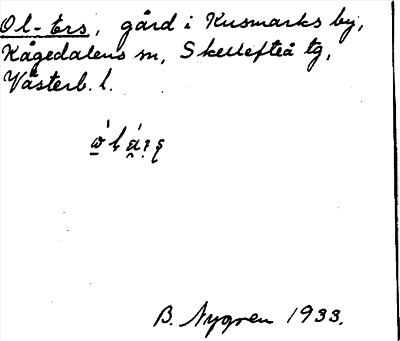 Ol-Ers, gård i Kusmarks by,
Kågedalens sn, Skellefteå tg,
Västerb. l.
B. Nygren 1933.